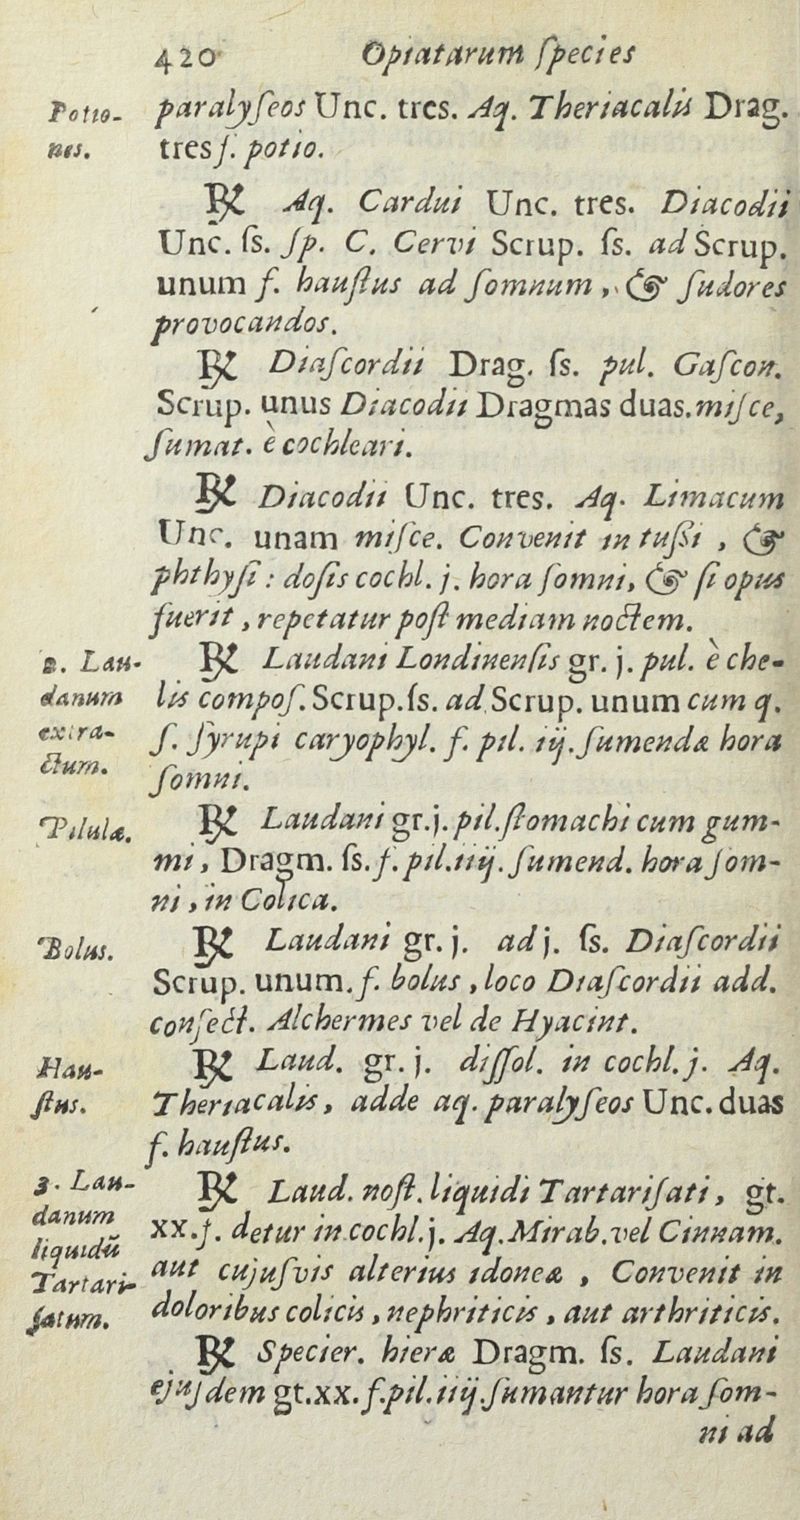 420 Opiatarum ſpecies
Potio- paralyſeos Unc. tres. Aq. Theriacalis Drag.
nes. tres f. potio.
℞ Aq. Cardui Unc. tres. Diacodii
Unc. ſs. ſp. C. Cervi Scrup. ſs. ad Scrup.
unum f. hauſtus ad ſomnum, & ſudores
provocandos.
℞ Diaſcordii Drag. ſs. pul. Gaſcon.
Scrup. unus Diacodii Dragmas duas. miſce,
ſumat. è cochleari.
℞ Diacodii Unc. tres. Aq. Limacum
Unc. unam miſce. Convenit in tuſſi, &
phthyſi: doſis cochl. j. hora ſomni, & ſi opus
fuerit, repetatur poſt mediam noctem.
2. Lau- ℞ Laudani Londinenſis gr. j. pul. è che-
danum lis compoſ. Scrup. ſs. ad Scrup. unum cum q.
extra- ſ. ſyrupi caryophyl. f. pil. iij. ſumendæ hora
ctum. ſomni.
Pilulæ. ℞ Laudani gr. j. pil. ſtomachi cum gum-
mi, Dragm. ſs. f. pil. iiij. ſumend. hora ſom-
ni, in Colica.
Bolus. ℞ Laudani gr. j. ad j. ſs. Diaſcordii
Scrup. unum. f. bolus, loco Diaſcordii add.
confect. Alchermes vel de Hyacint.
Hau- ℞ Laud. gr. j. diſſol. in cochl. j. Aq.
ſtus. Theriacalis, adde aq. paralyſeos Unc. duas
f. hauſtus.
3. Lau- ℞ Laud. noſt. liquidi Tartariſati, gt.
danum xx. ſ. detur in cochl. j. Aq. Mirab. vel Cinnam.
liquidū aut cujuſvis alterius idoneæ, Convenit in
Tartari- doloribus colicis, nephriticis, aut arthriticis.
ſatum. ℞ Specier. hieræ Dragm. ſs. Laudani
ejuſdem gt. xx. f. pil. iiij. ſumantur hora ſom-
ni ad